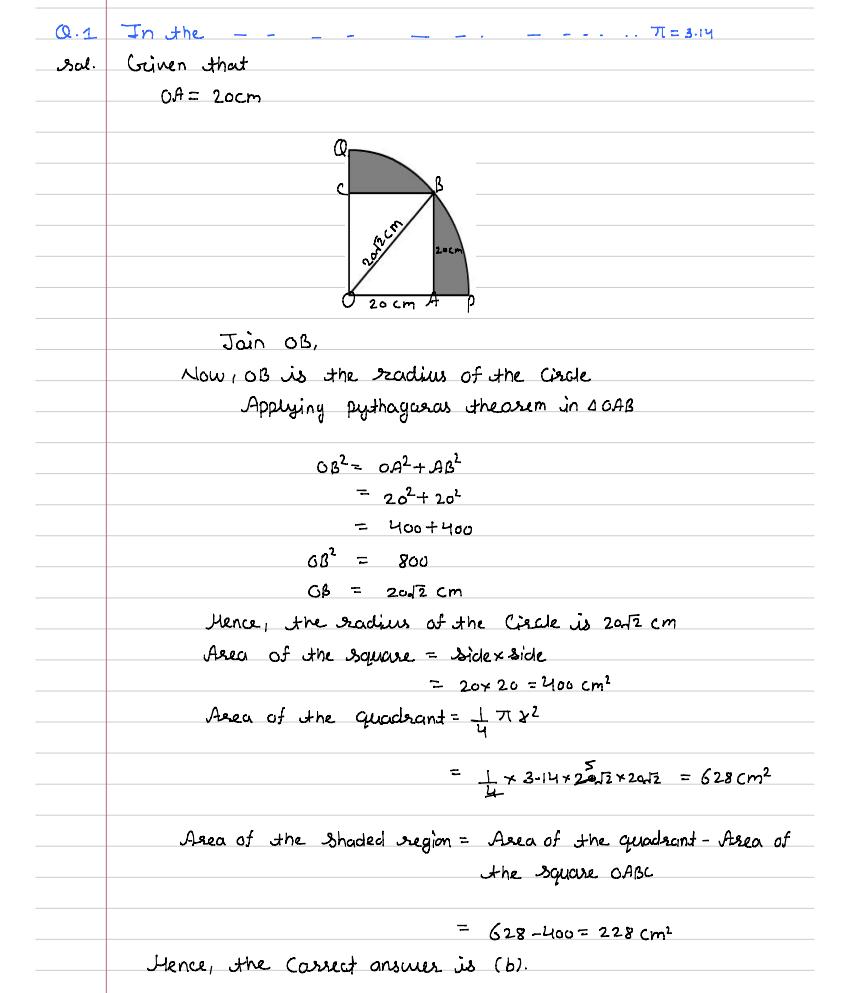 Q.1 In the — - — - — -. — - - - .. .. π = 3.14
Sol. Given that
OA = 20cm
Q
C B
20√2 cm
20cm
O 20 cm A P
Join OB,
Now, OB is the radius of the Circle
Applying pythagoras theorem in ΔOAB
OB² = OA² + AB²
= 20² + 20²
= 400 + 400
OB² = 800
OB = 20√2 cm
Hence, the radius of the Circle is 20√2 cm
Area of the square = side × side
= 20 × 20 = 400 cm²
Area of the quadrant = 1/4 π r²
= 1/4 × 3.14 × 20√2 × 20√2 = 628 cm²
5
Area of the shaded region = Area of the quadrant - Area of
the square OABC
= 628 - 400 = 228 cm²
Hence, the Correct answer is (b).